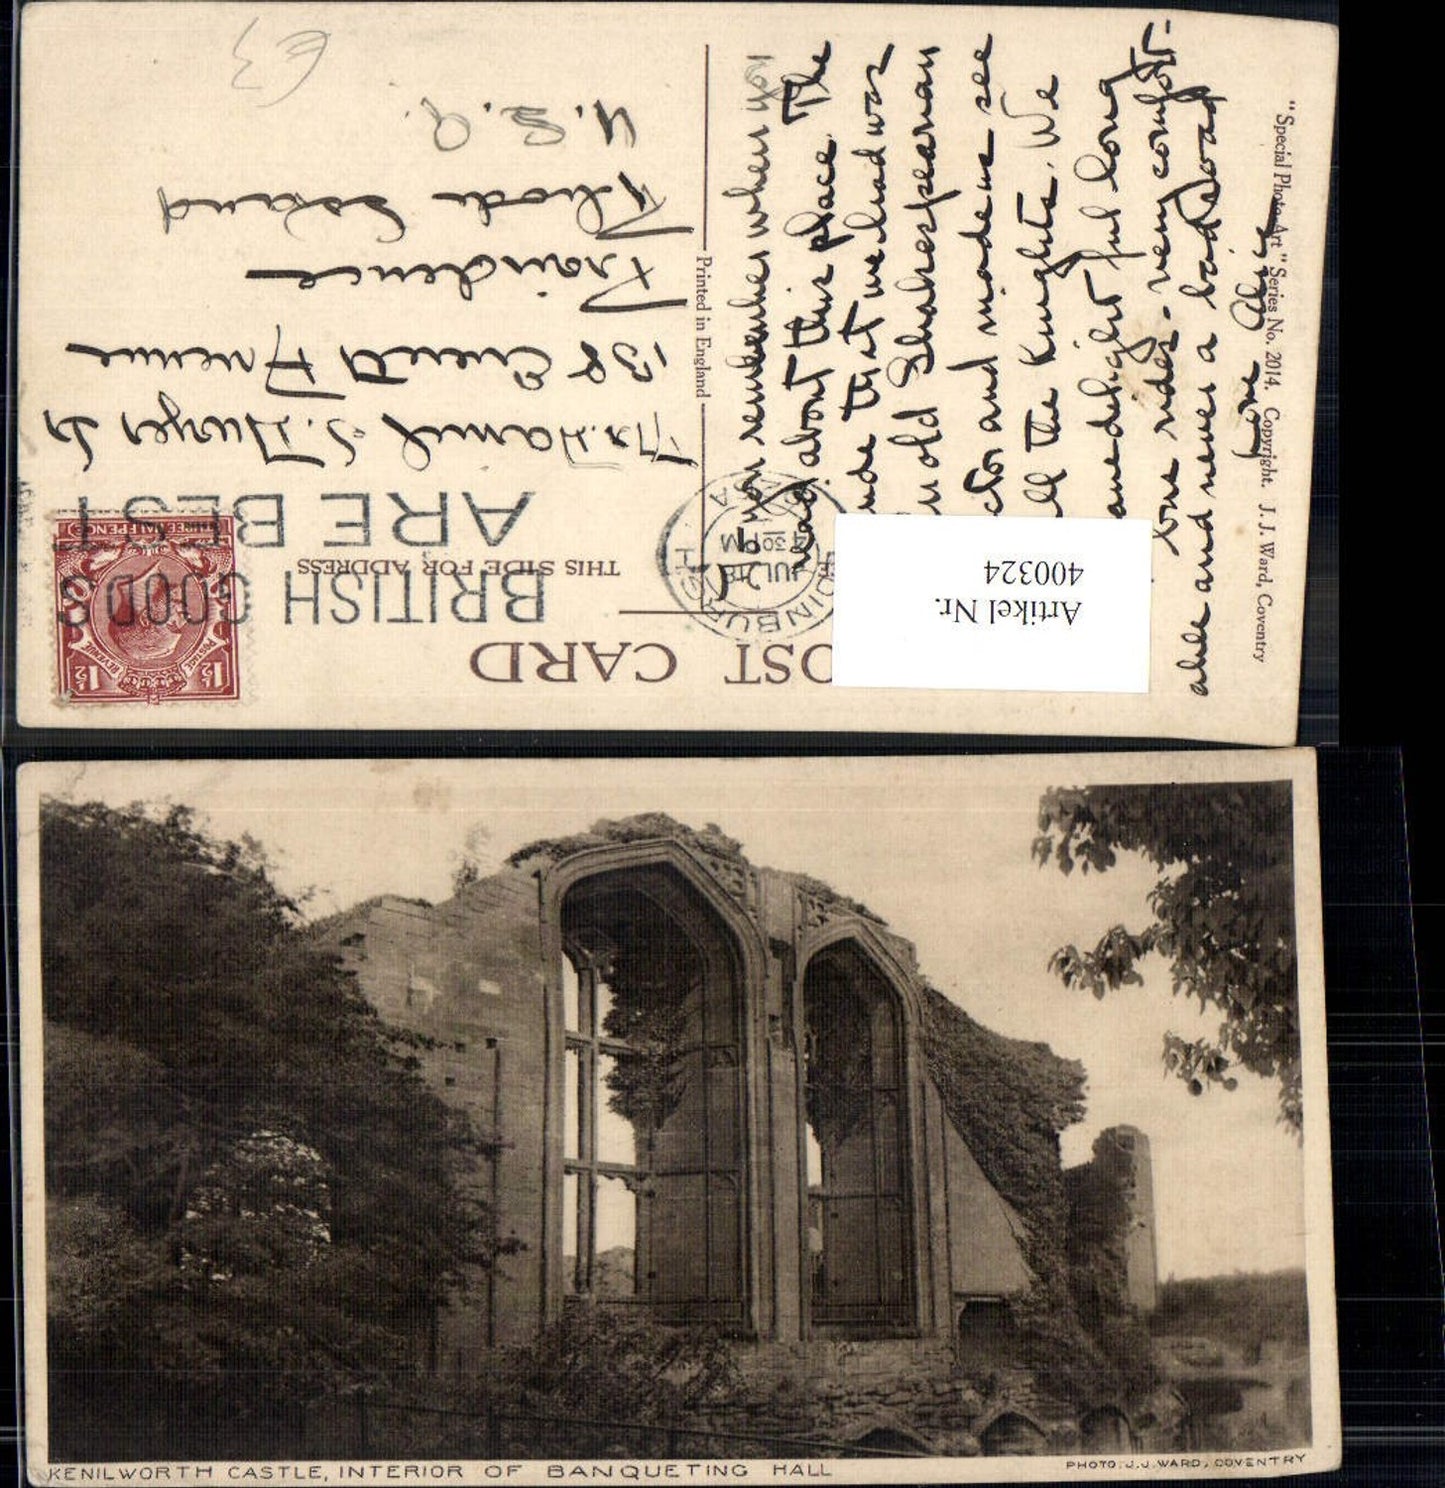 POST CARD
THIS SIDE FOR ADDRESS
BRITISH GOODS
ARE BEST
EDINBURGH
4 30 PM
JUL
POSTAGE REVENUE
1½ 1½
THREE HALFPENCE
Artikel Nr.
400324
Daniel S.
138 Avenue
Providence
Rhode Island
U.S.A.
£3
Printed in England
you remember when you
read about this place. The
guide that we had was
an old Shakespearean
actor and made us see
all the Knights. We
have delightful long
bus rides - very comfort-
able and never a bad road
Love Alice
"Special Photo Art" Series No. 2014. Copyright. J. J. Ward, Coventry
KENILWORTH CASTLE, INTERIOR OF BANQUETING HALL
PHOTO. J.J. WARD, COVENTRY